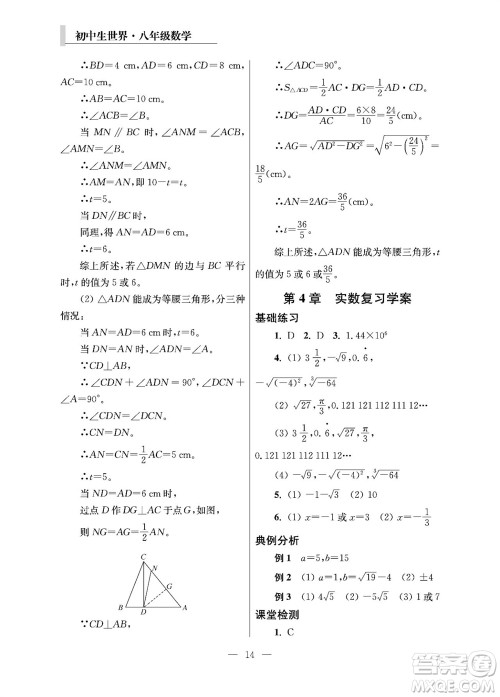 初中生世界·八年级数学
∴BD=4 cm，AD=6 cm，
∴AC=10 cm.
∴AB=AC=10 cm.
∴∠ACB=∠B.
当 MN∥BC 时，∠ANM=∠ACB，
∠AMN=∠B.
∴∠ANM=∠AMN.
∴AM=AN，即 10-t=t.
∴t=5.
当 DN∥BC 时，
同理，得 AN=AD=6.
∴t=6.
综上所述，若△DMN 的边与 BC 平行，
t 的值为 5 或 6.
(2) △ADN 能成为等腰三角形，分三种
情况：
当 AN=AD=6 cm 时，
∴t=6.
当 DN=AN 时，∠A=∠ADN.
∵CD⊥AB，
∴∠CDN+∠ADN=90°，∠ACD+
∠A=90°.
∴∠CDN=∠ACD.
∴DN=CN.
∴AN=CN=1/2AC=5 cm.
∴t=5.
当 ND=AD=6 cm 时，
过点 D 作 DG⊥AC 于点 G，如图，
则 NG=AG=1/2AN.
C
N
G
B D A
∵CD⊥AB，
∴∠ADC=90°.
∴S△ACD=1/2AC·DG=1/2AD·CD.
∴DG=AD·CD/AC=6×8/10=24/5(cm).
∴AG=√(AD²-DG²)=√(6²-(24/5)²)=
18/5(cm).
∴AN=2AG=36/5(cm).
∴t=36/5.
综上所述，△ADN 能成为等腰三角形，t
的值为 5 或 6 或 36/5.
第 4 章 实数复习学案
基础练习
1. D 2. D 3. 1.44×10⁶
4. (1) 3 1/2，-√9，0.6̇，
-√(-4)²，∛-64
(2) √27，π/3，0.121 121 112 111 12…
(3) 3 1/2，0.6̇，√27，π/3，
0.121 121 112 111 12…
(4) -√9，-√(-4)²，∛-64
5. (1) > (2) >
6. (1) x=3 (2) x=-1/3
典例分析
例 1 a=5，b=15
例 2 (1) a=2，b=√19-4 (2) ±4
例 3 (1) 4√5 (2) -1-√5
课堂检测
1. C
14